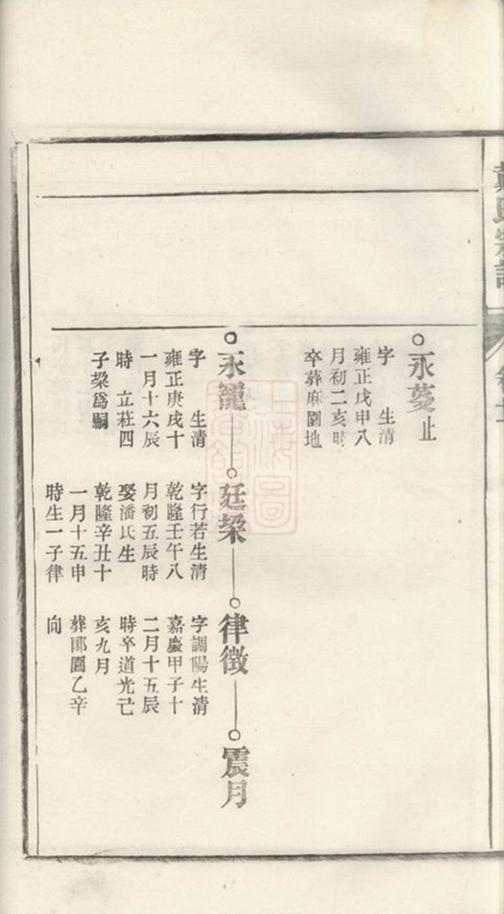 永蔓止
字　生清
雍正戊申八
月初二亥時
卒葬麻園地
永寵
字　生清
雍正庚戌十
一月十六辰
時　立莊四
子梁爲嗣
廷梁
字行若生清
乾隆壬午八
月初五辰時
娶潘氏生
乾隆辛丑十
一月十五申
時生一子律
律徵
字調陽生清
嘉慶甲子十
二月十五辰
時卒道光己
亥九月
葬郿園乙辛
向
震月